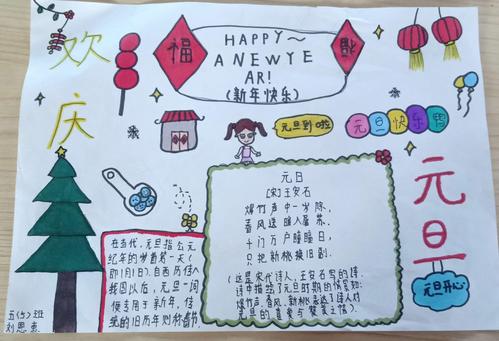 欢庆
福
福
HAPPY~
A NEWYE
AR!
(新年快乐)
元旦到啦
元旦快乐哟
元旦
元旦开心
元日
[宋]王安石
爆竹声中一岁除,
春风送暖入屠苏。
千门万户曈曈日,
只把新桃换旧
(这是宋代诗人,王安石写的诗
爆竹声,春风,新桃表达了诗人对
元旦的喜爱与赞美之情).
在当代,元旦指公元
纪年的岁首第一天(
即1月1日).自西历传入
我国以后,元旦一词
便专用于新年,传
统的旧历年则称春节.
五(5)班